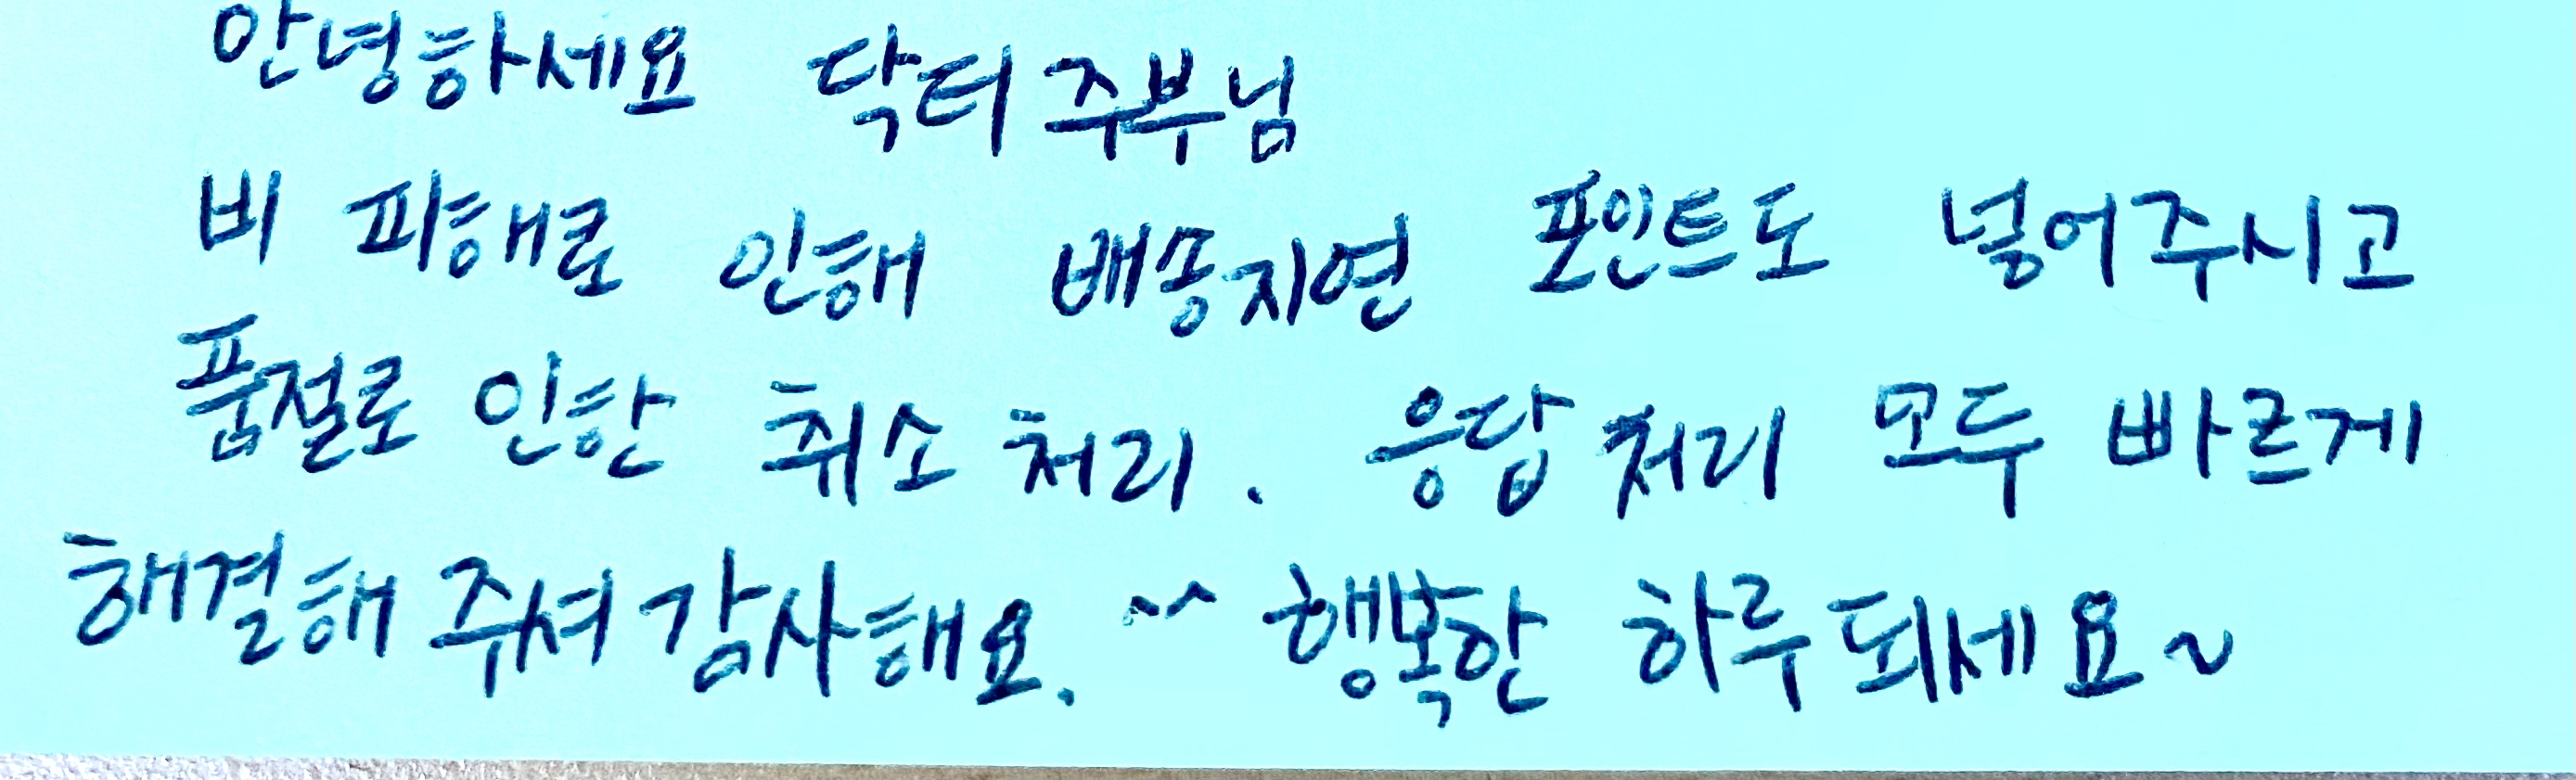 안녕하세요 닥터주부님
비 피해로 인해 배송지연 포인트도 넣어주시고
품절로 인한 취소처리. 응답처리 모두 빠르게
해결해주셔감사해요. ^^ 행복한 하루되세요~